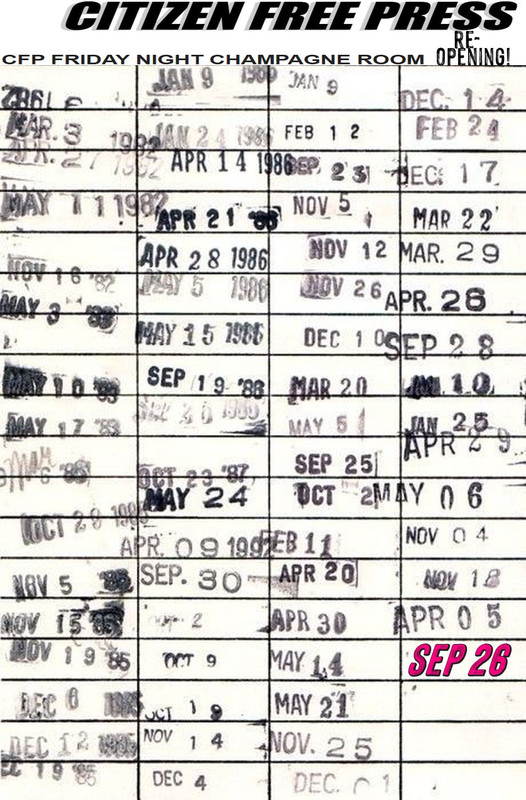 CITIZEN FREE PRESS
RE-
OPENING!
CFP FRIDAY NIGHT CHAMPAGNE ROOM
MAR. 3 1982
MAY 11 1982
NOV 16 '82
MAY 3 '83
MAY 10 '83
MAY 17 '83
OCT 29
NOV 5
NOV 15 '85
NOV 19 '85
DEC 6 1985
DEC 12 1985
19 '85
JAN 9
JAN 24 1986
APR 14 1986
APR 21 '86
APR 28 1986
MAY 5 1986
MAY 15 1986
SEP 19 '86
OCT 23 '87
MAY 24
APR. 09 1992
SEP. 30
OCT 9
NOV 14
DEC 4
JAN 9
FEB 12
SEP 23
NOV 5
NOV 12
NOV 26
DEC 10
MAR 20
MAY 5
SEP 25
OCT 2
FEB 11
APR 20
APR 30
MAY 14
MAY 21
NOV. 25
DEC. 14
FEB 24
DEC. 17
MAR 22
MAR. 29
APR. 26
SEP 28
JAN 25
APR 29
MAY 06
NOV 04
NOV 18
APR 05
SEP 26